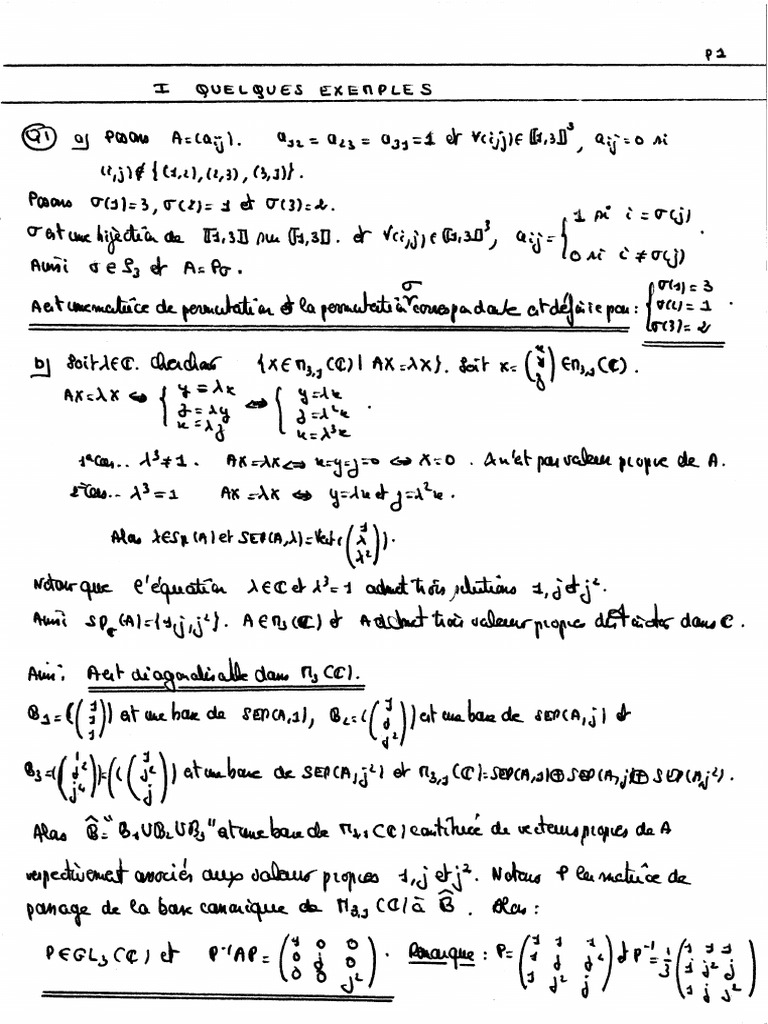 P1
I QUELQUES EXEMPLES
Q1 a) Posons A=(aij). a12 = a23 = a31 = 1 et ∀(i,j)∈⟦1,3⟧³, aij = 0 si
(i,j)∉{(1,2),(2,3),(3,1)}.
Posons σ(1)=3, σ(2)=1 et σ(3)=2.
σ est une bijection de ⟦1,3⟧ sur ⟦1,3⟧. et ∀(i,j)∈⟦1,3⟧³, aij = { 1 si i=σ(j) 0 si i≠σ(j) .
Ainsi σ∈S3 et A=Pσ.
A est une matrice de permutation et la permutation σ correspondante est définie par : { σ(1)=3 σ(2)=1 σ(3)=2 .
b) Soit λ∈ℂ. Cherchons {X∈M3,1(ℂ) | AX=λX}. Soit X=(x y z)∈M3,1(ℂ).
AX=λX ⇔ { y=λx z=λy x=λz ⇔ { y=λx z=λ²x x=λ³x .
1er cas.. λ³≠1. AX=λX ⇔ x=y=z=0 ⇔ X=0. λ n'est pas valeur propre de A.
2e cas.. λ³=1 AX=λX ⇔ y=λx et z=λ²x.
Alors λ∈Sp(A) et SEP(A,λ)=Vect((1 λ λ²)).
Notons que l'équation λ∈ℂ et λ³=1 admet trois solutions 1, j et j².
Ainsi Spℂ(A)={1,j,j²}. A∈M3(ℂ) et A admet trois valeurs propres distinctes dans ℂ.
Ainsi: A est diagonalisable dans M3(ℂ).
B1=((1 1 1)) est une base de SEP(A,1), B2=((1 j j²)) est une base de SEP(A,j) et
B3=((1 j² j⁴))=((1 j² j)) est une base de SEP(A,j²) et M3,1(ℂ)=SEP(A,1)⊕SEP(A,j)⊕SEP(A,j²).
Alors B̂="B1∪B2∪B3" est une base de M3,1(ℂ) constituée de vecteurs propres de A
respectivement associés aux valeurs propres 1, j et j². Notons P la matrice de
passage de la base canonique de M3,1(ℂ) à B̂. Alors :
P∈GL3(ℂ) et P⁻¹AP=(1 0 0 0 j 0 0 0 j²). Remarque : P=(1 1 1 1 j j² 1 j² j) et P⁻¹=1/3(1 1 1 1 j² j 1 j j²)